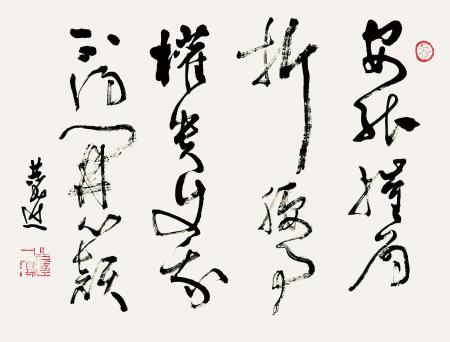 安能摧眉
折腰事
權貴使我
不得開心顏